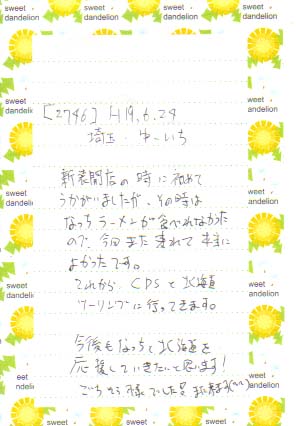 sweet dandelion
sweet dandelion
sweet dandelion
[2746] H19.6.24
埼玉 ゆーいち
新装開店の時に初めて
うかがいましたが、その時は
なっちラーメンが食べれなかった
ので、今回また来れて本当に
よかったです。
これから CDSと北海道
ツーリングに行ってきます。
今後もなっちと北海道を
応援していきたいと思います!
ごちそう様でした
sweet dandelion
sweet dandelion
sweet dandelion
sweet dandelion
sweet dandelion
sweet dandelion
sweet dandelion
sweet dandelion
sweet dandelion